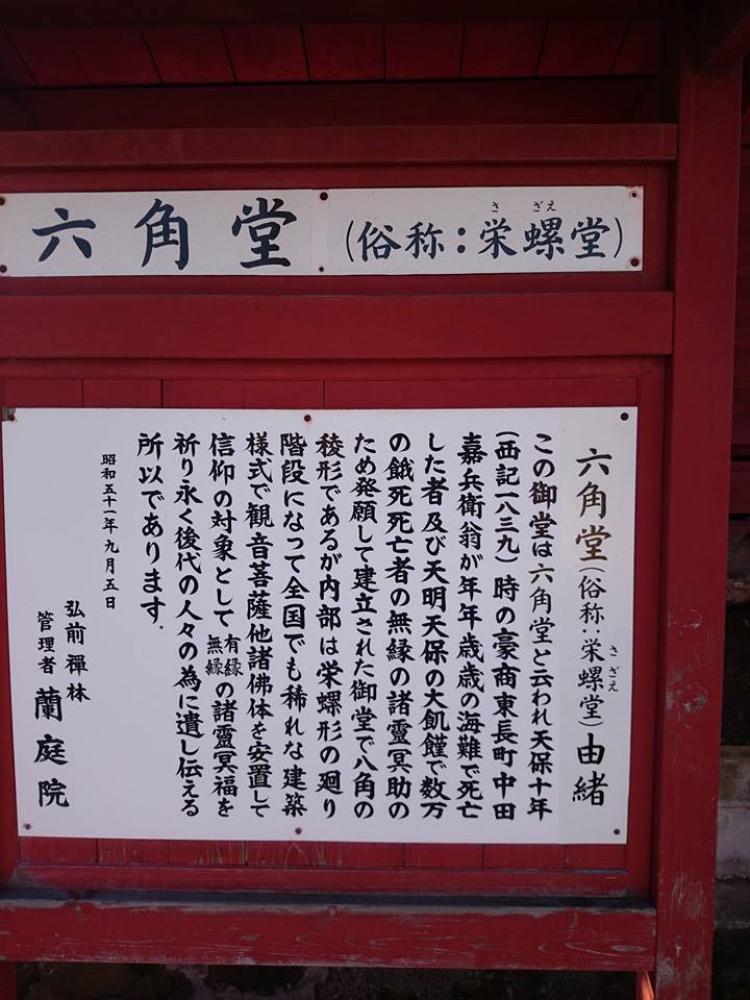 六角堂(俗称:栄螺堂)
さざえ
六角堂(俗称:栄螺堂)由緒
さざえ
この御堂は六角堂と云われ天保十年
(西記一八三九)時の豪商東長町中田
嘉兵衛翁が年年歳歳の海難で死亡
した者及び天明天保の大飢饉で数万
の餓死死亡者の無縁の諸靈冥助の
ため発願して建立された御堂で八角の
稜形であるが内部は栄螺形の廻り
階段になって全国でも稀れな建築
様式で観音菩薩他諸佛体を安置して
信仰の対象として有縁無縁の諸靈冥福を
祈り永く後代の人々の為に遺し伝える
所以であります.
昭和五十一年九月五日
弘前禪林
管理者 蘭庭院